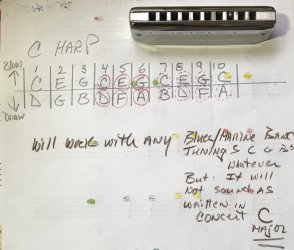 C HARP
Blow
1 2 3 4 5 6 7 8 9 10
C E G C E G C E G C
D G B D F A B D F A
Draw
Will work with any Blues/Marine Band
Tuning S C G B
whatever
But: It will
not sound as
written in
concert C
Major